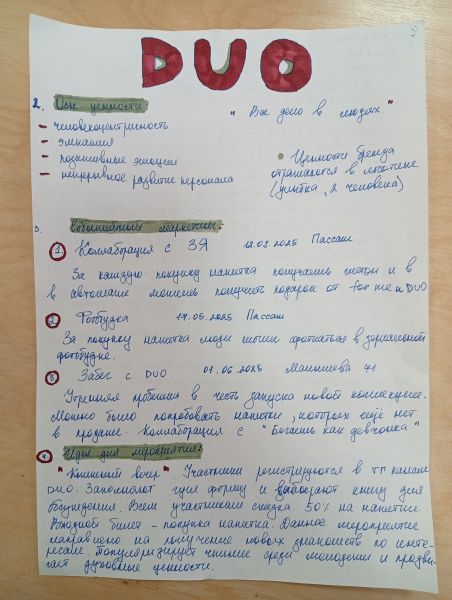 DUO
2. Осн. ценности
" Все дело в людях "
- человекоцентричность
- эмпатия
- позитивные эмоции
- непрерывное развитие персонала
• Ценности бренда
отражаются в логотипе
(улитка, я человека)
3. Событийный маркетинг:
1 Коллаборация с ЗЯ 12.03.2025 Пассаж
За каждую покупку напитка получаешь жетон и в
в автомате можешь получить подарок от for me и DUO
2 Фотобудка 17.05.2025 Пассаж
За покупку напитка люди могли фоткаться в зеркальной
фотобудке.
3 Забег с DUO 01.06.2025 Малышева 71
Утренняя пробежка в честь запуска новой коллекции.
Можно было попробовать напитки, которых ещё нет
в продаже. Коллаборация с "Бегаешь как девчонка"
4 Идея для мероприятия:
" Книжный вечер". Участники регистрируются в ТГ канале
DUO. Заполняют гугл форму и выбирают книгу для
обсуждения. Всем участникам скидка 50% на напитки.
Входной билет – покупка напитка. Данное мероприятие
направлено на получение новых знакомств по инте-
ресам. Популяризирует чтение среди молодежи и продви-
гает духовные ценности.